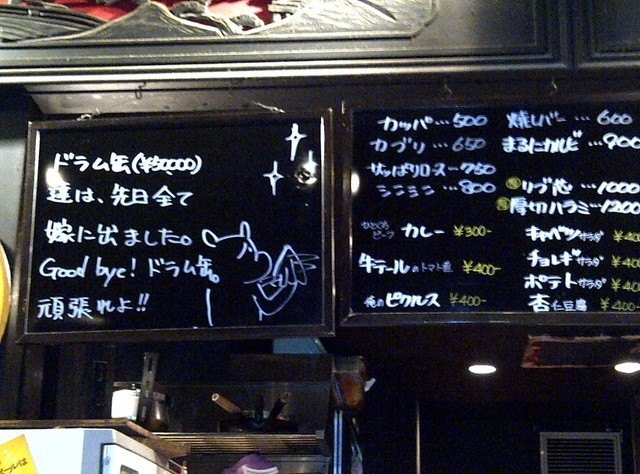 ドラム缶(¥50000)
達は、先日全て
嫁に出ました。
Good bye! ドラム缶。
頑張れよ!!
カッパ…500
カブリ…650
サッぱりロース…750
シンシン…800
ひとくちビーフ カレー ¥300-
牛テールのトマト煮 ¥400-
俺のピクルス ¥400-
焼レバー…600
まるにカルビ…900
リブ芯…1000
厚切ハラミ…1200
キャベツサラダ ¥40
チョレギサラダ ¥40
ポテトサラダ ¥40
杏仁豆腐 ¥400